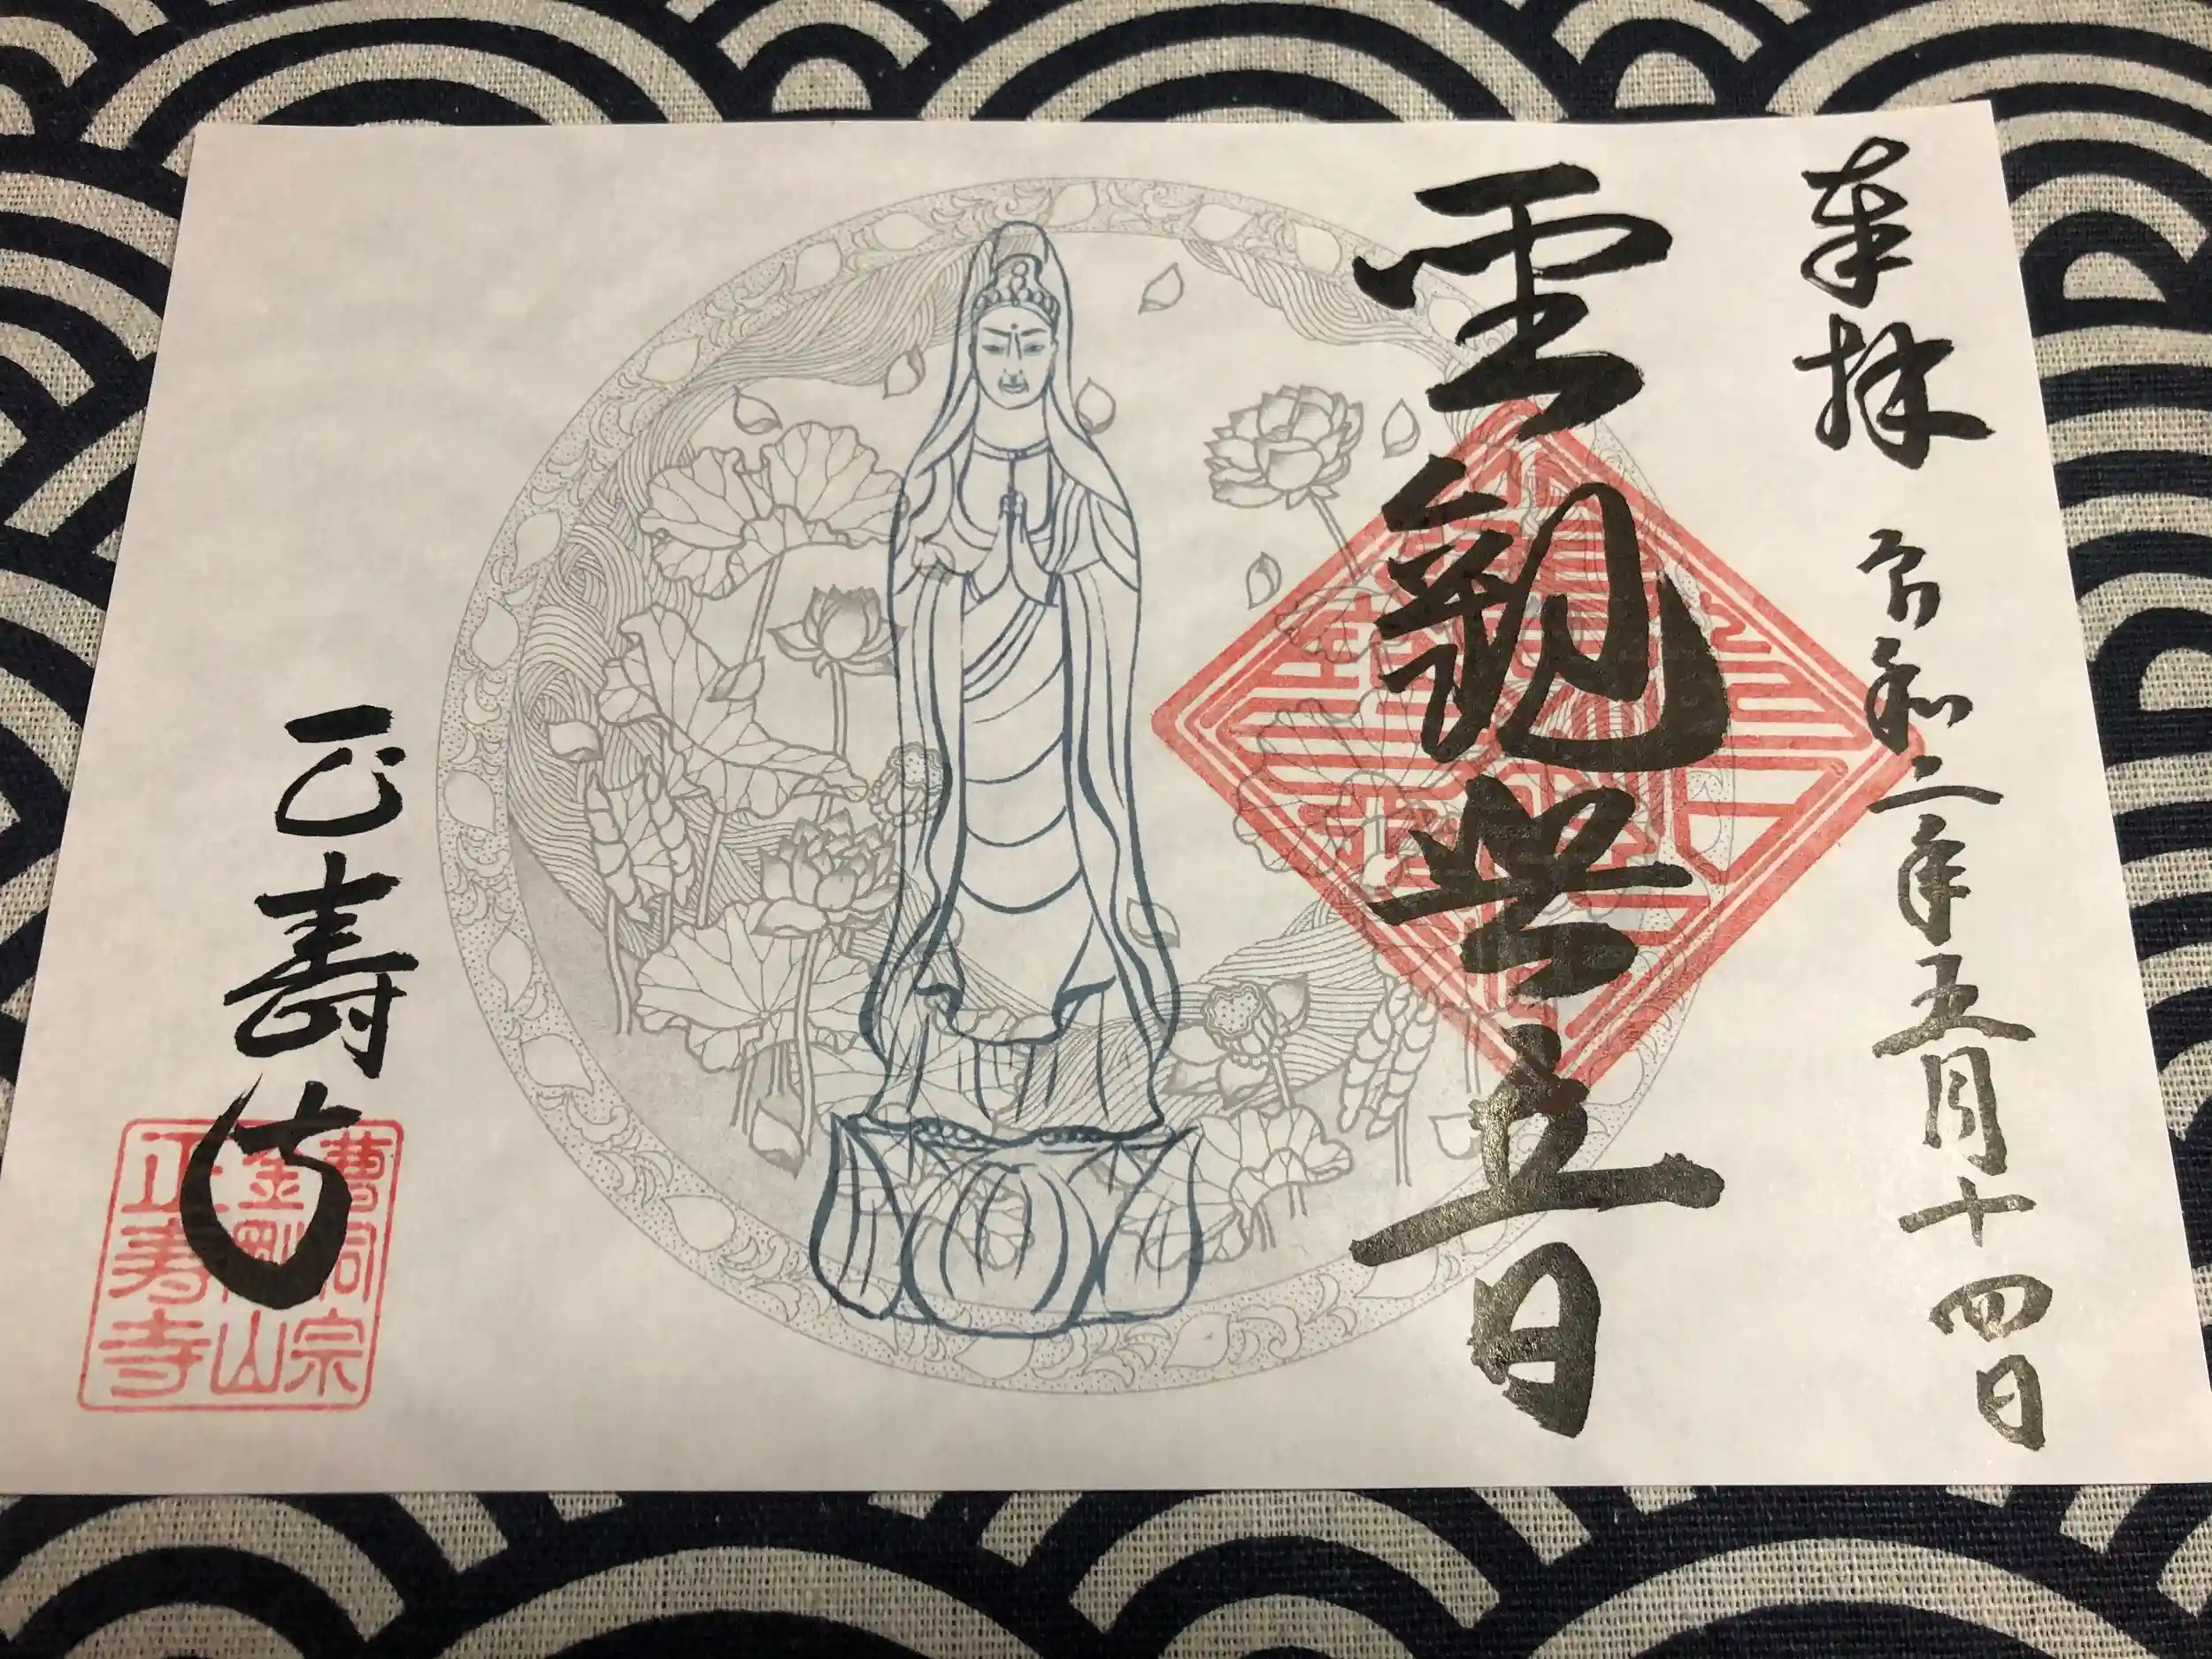 奉拝 令和二年五月十四日
觀世音
正壽寺
曹洞宗
金剛山
正寿寺